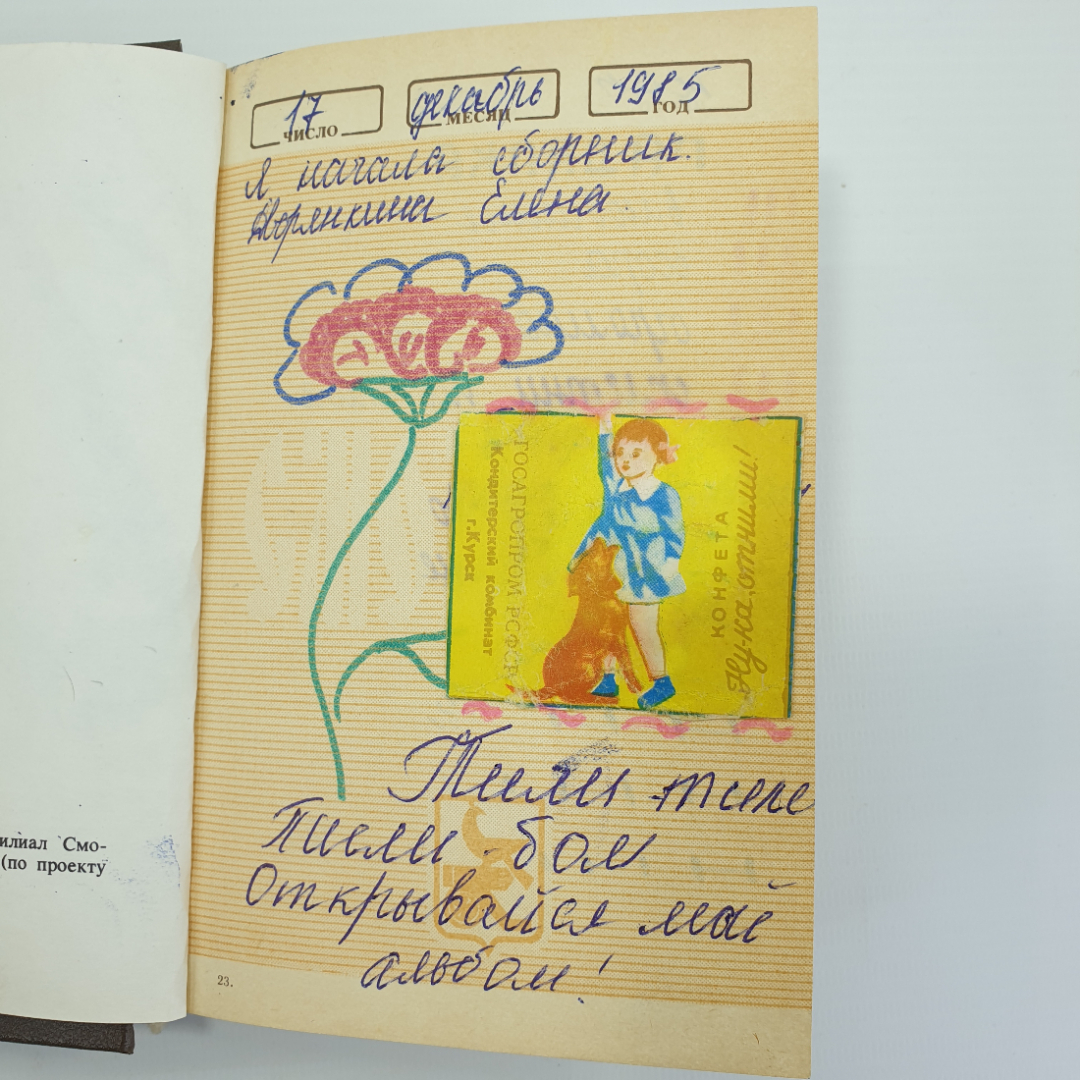 17 декабрь 1985
ЧИСЛО МЕСЯЦ ГОД
Я начала сборник.
Елена.
ГОСАГРОПРОМ РСФСР
Кондитерский комбинат
г.Курск
КОНФЕТА
Ну-ка, отними!
Тили тили
Тили - бом
Открывайся мой
альбом!
илиал Смо-
(по проекту
23.